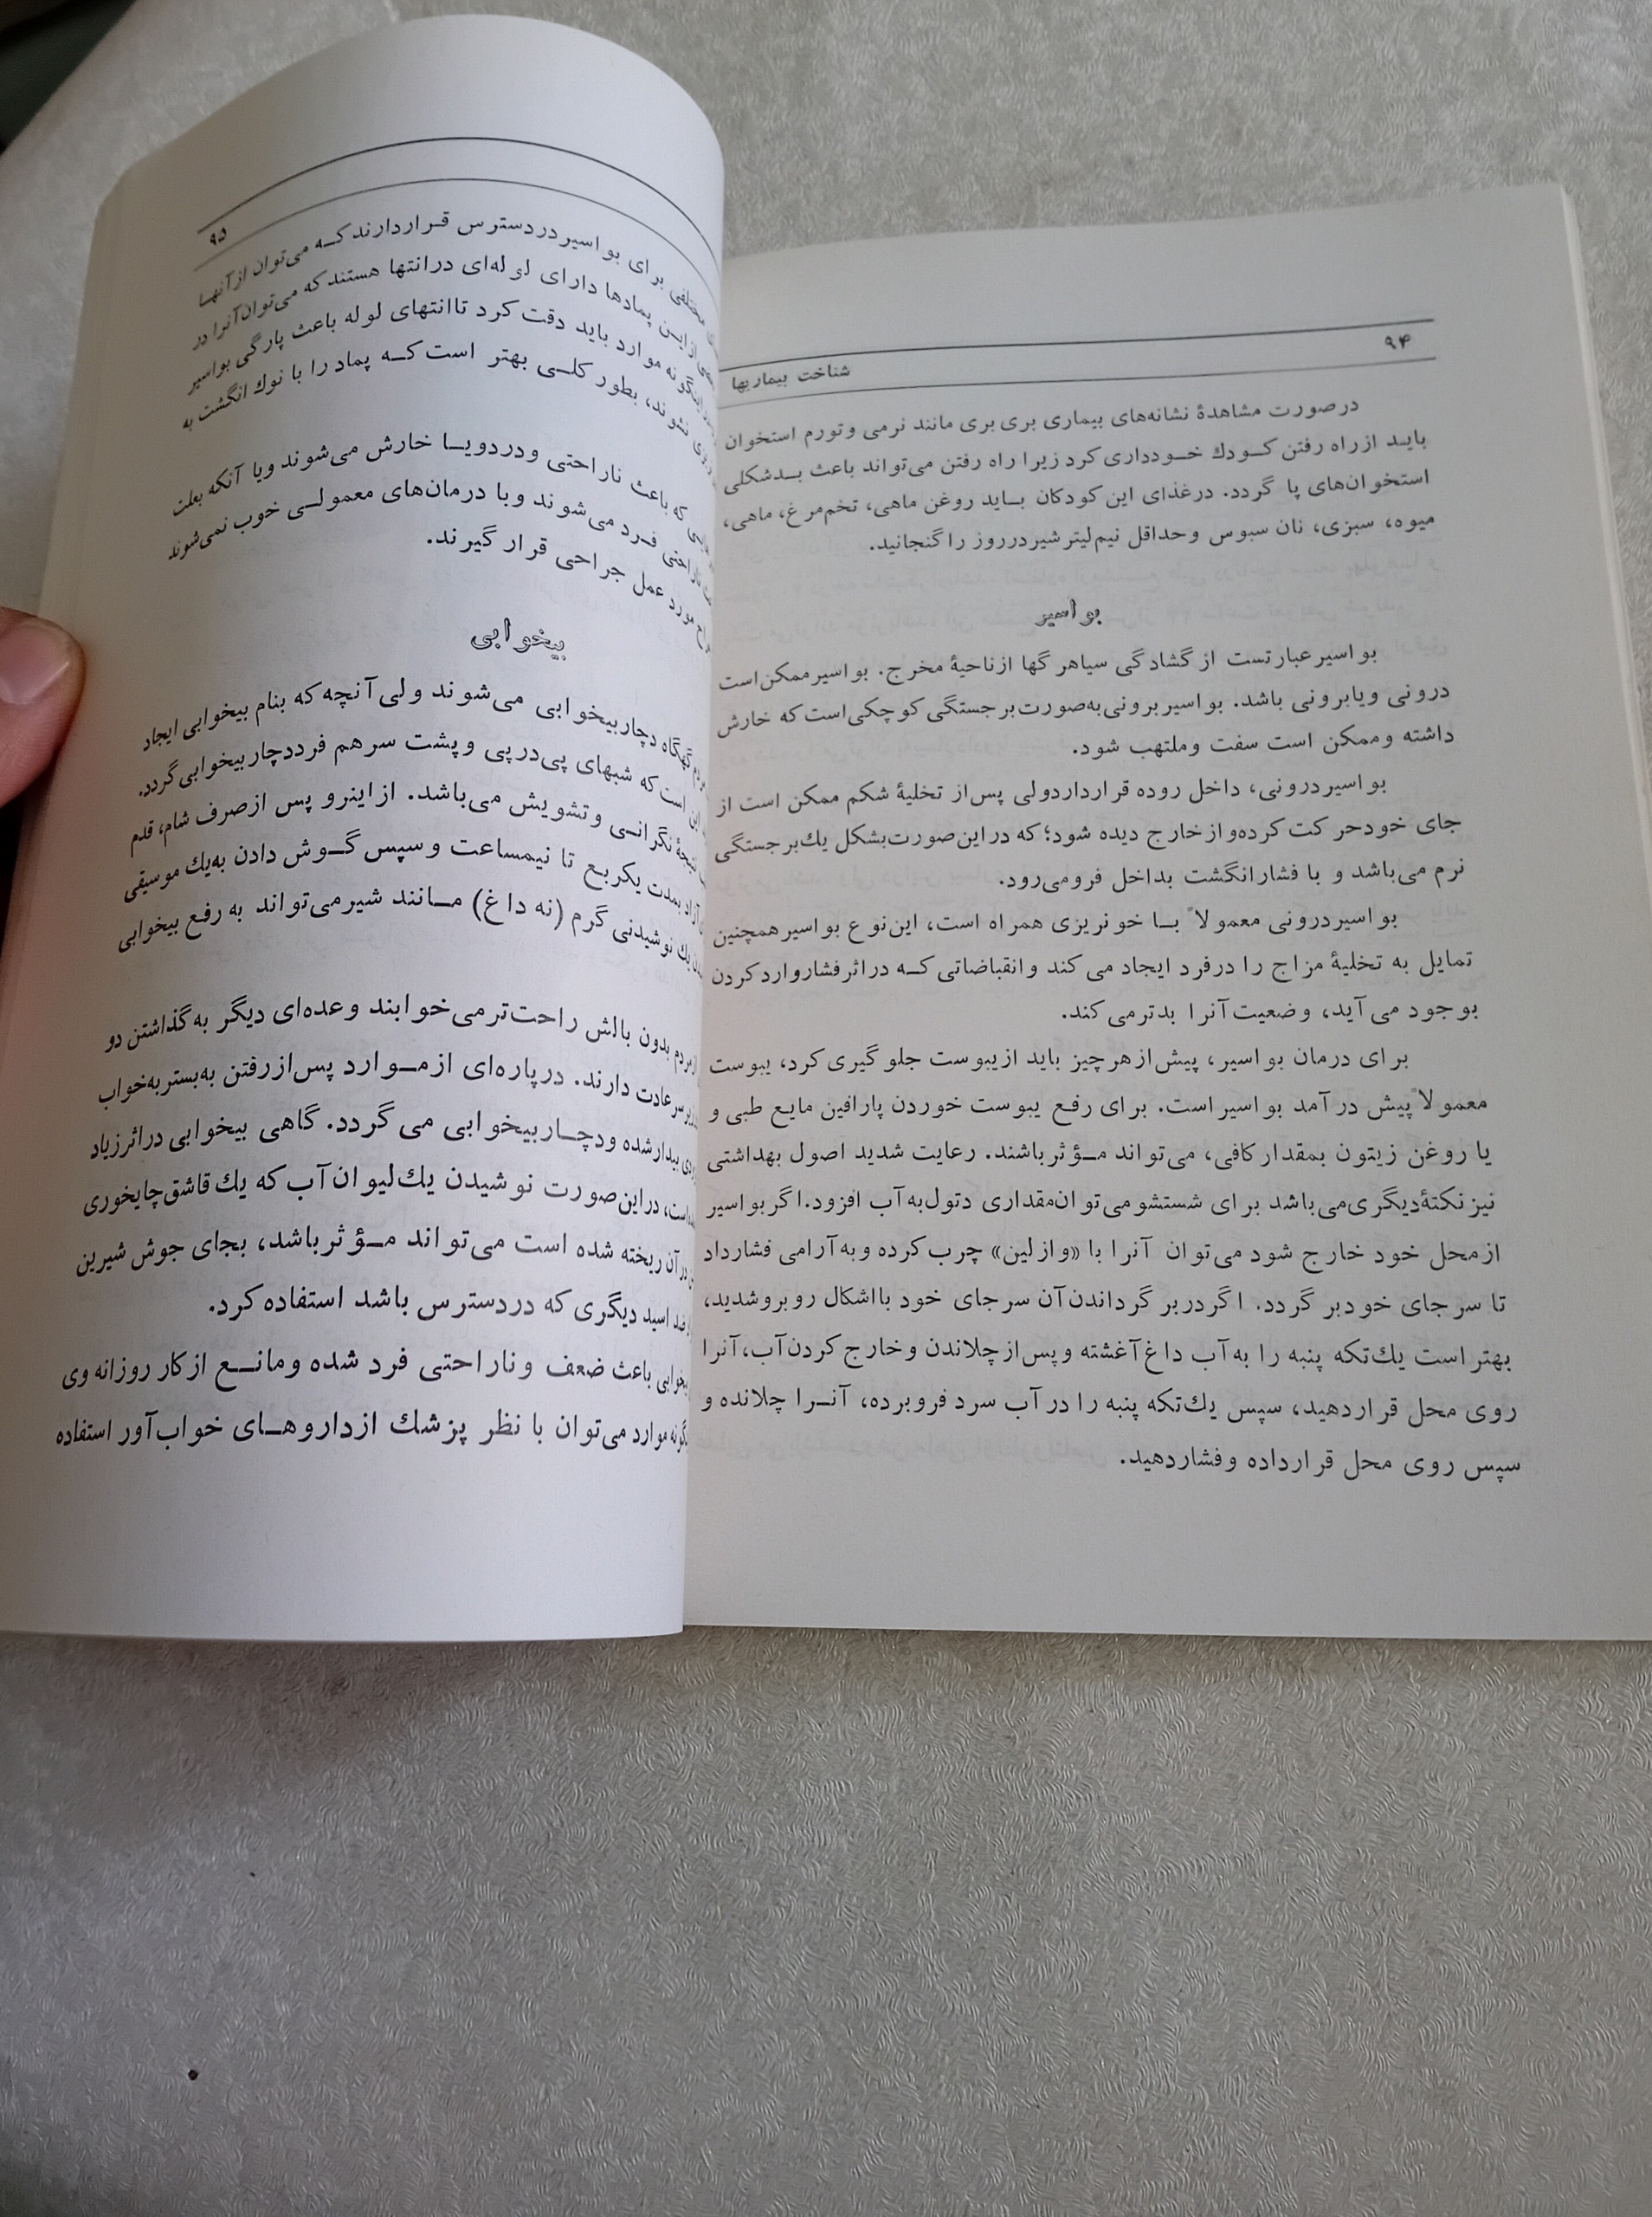 ۹۴
شناخت بیماریها
درصورت مشاهدهٔ نشانه‌های بیماری بری بری مانند نرمی وتورم استخوان
باید از راه رفتن کودك خودداری کرد زیرا راه رفتن می‌تواند باعث بدشکلی
استخوان‌های پا گردد. درغذای این کودکان باید روغن ماهی، تخم‌مرغ، ماهی،
میوه، سبزی، نان سبوس وحداقل نیم‌لیتر شیر در روز را گنجانید.
بواسیر
بواسیر عبارتست از گشادگی سیاهرگها از ناحیهٔ مخرج. بواسیر ممکن است
درونی ویا برونی باشد. بواسیر برونی به‌صورت برجستگی کوچکی است که خارش
داشته وممکن است سفت وملتهب شود.
بواسیر درونی، داخل روده قرار دارد ولی پس‌از تخلیهٔ شکم ممکن است از
جای خود حرکت کرده و از خارج دیده شود؛ که دراین صورت بشکل یك برجستگی
نرم می‌باشد و با فشار انگشت بداخل فرومی‌رود.
بواسیر درونی معمولاً با خونریزی همراه است، این نوع بواسیر همچنین
تمایل به تخلیهٔ مزاج را درفرد ایجاد می‌کند وانقباضاتی که در اثر فشار وارد کردن
بوجود می‌آید، وضعیت آنرا بدتر می‌کند.
برای درمان بواسیر، پیش از هر چیز باید از یبوست جلوگیری کرد، یبوست
معمولاً پیش درآمد بواسیر است. برای رفع یبوست خوردن پارافین مایع طبی و
یا روغن زیتون بمقدار کافی، می‌تواند مؤثر باشند. رعایت شدید اصول بهداشتی
نیز نکتهٔ دیگری می‌باشد برای شستشو می‌توان مقداری دتول به آب افزود. اگر بواسیر
از محل خود خارج شود می‌توان آنرا با «وازلین» چرب کرده و به آرامی فشار داد
تا سر جای خود بر گردد. اگر در بر گرداندن آن سر جای خود با اشکال روبرو شدید،
بهتر است یك تکه پنبه را به آب داغ آغشته و پس از چلاندن و خارج کردن آب، آنرا
روی محل قرار دهید، سپس یك تکه پنبه را در آب سرد فروبرده، آنرا چلانده و
سپس روی محل قرارداده وفشار دهید.
۹۵
مختلفی برای بواسیر در دسترس قرار دارند که می‌توان از آنها
از این پمادها دارای لوله‌ای در انتها هستند که می‌توان آنرا در
اینگونه موارد باید دقت کرد تا انتهای لوله باعث پارگی بواسیر
نشوند، بطور کلی بهتر است که پماد را با نوك انگشت به
که باعث ناراحتی ودرد ویا خارش می‌شوند ویا آنکه بعلت
ناراحتی فرد می‌شوند وبا درمان‌های معمولی خوب نمی‌شوند
مورد عمل جراحی قرار گیرند.
بیخوابی
گهگاه دچار بیخوابی می‌شوند ولی آنچه که بنام بیخوابی ایجاد
است که شبهای پی‌درپی وپشت سرهم فرد دچار بیخوابی گردد.
نتیجهٔ نگرانی وتشویش می‌باشد. از اینرو پس از صرف شام، قدم
آزاد بمدت یکربع تا نیمساعت وسپس گوش دادن به‌یك موسیقی
یك نوشیدنی گرم (نه داغ) مانند شیر می‌تواند به رفع بیخوابی
مردم بدون بالش راحت‌تر می‌خوابند وعده‌ای دیگر به گذاشتن دو
سر عادت دارند. درپاره‌ای از موارد پس از رفتن به بستر به خواب
بیدار شده ودچار بیخوابی می‌گردد. گاهی بیخوابی در اثر زیاد
است، دراین صورت نوشیدن یك لیوان آب که یك قاشق چایخوری
در آن ریخته شده است می‌تواند مؤثر باشد، بجای جوش شیرین
ضد اسید دیگری که در دسترس باشد استفاده کرد.
بیخوابی باعث ضعف وناراحتی فرد شده ومانع از کار روزانه وی
موارد می‌توان با نظر پزشك از داروهای خواب‌آور استفاده